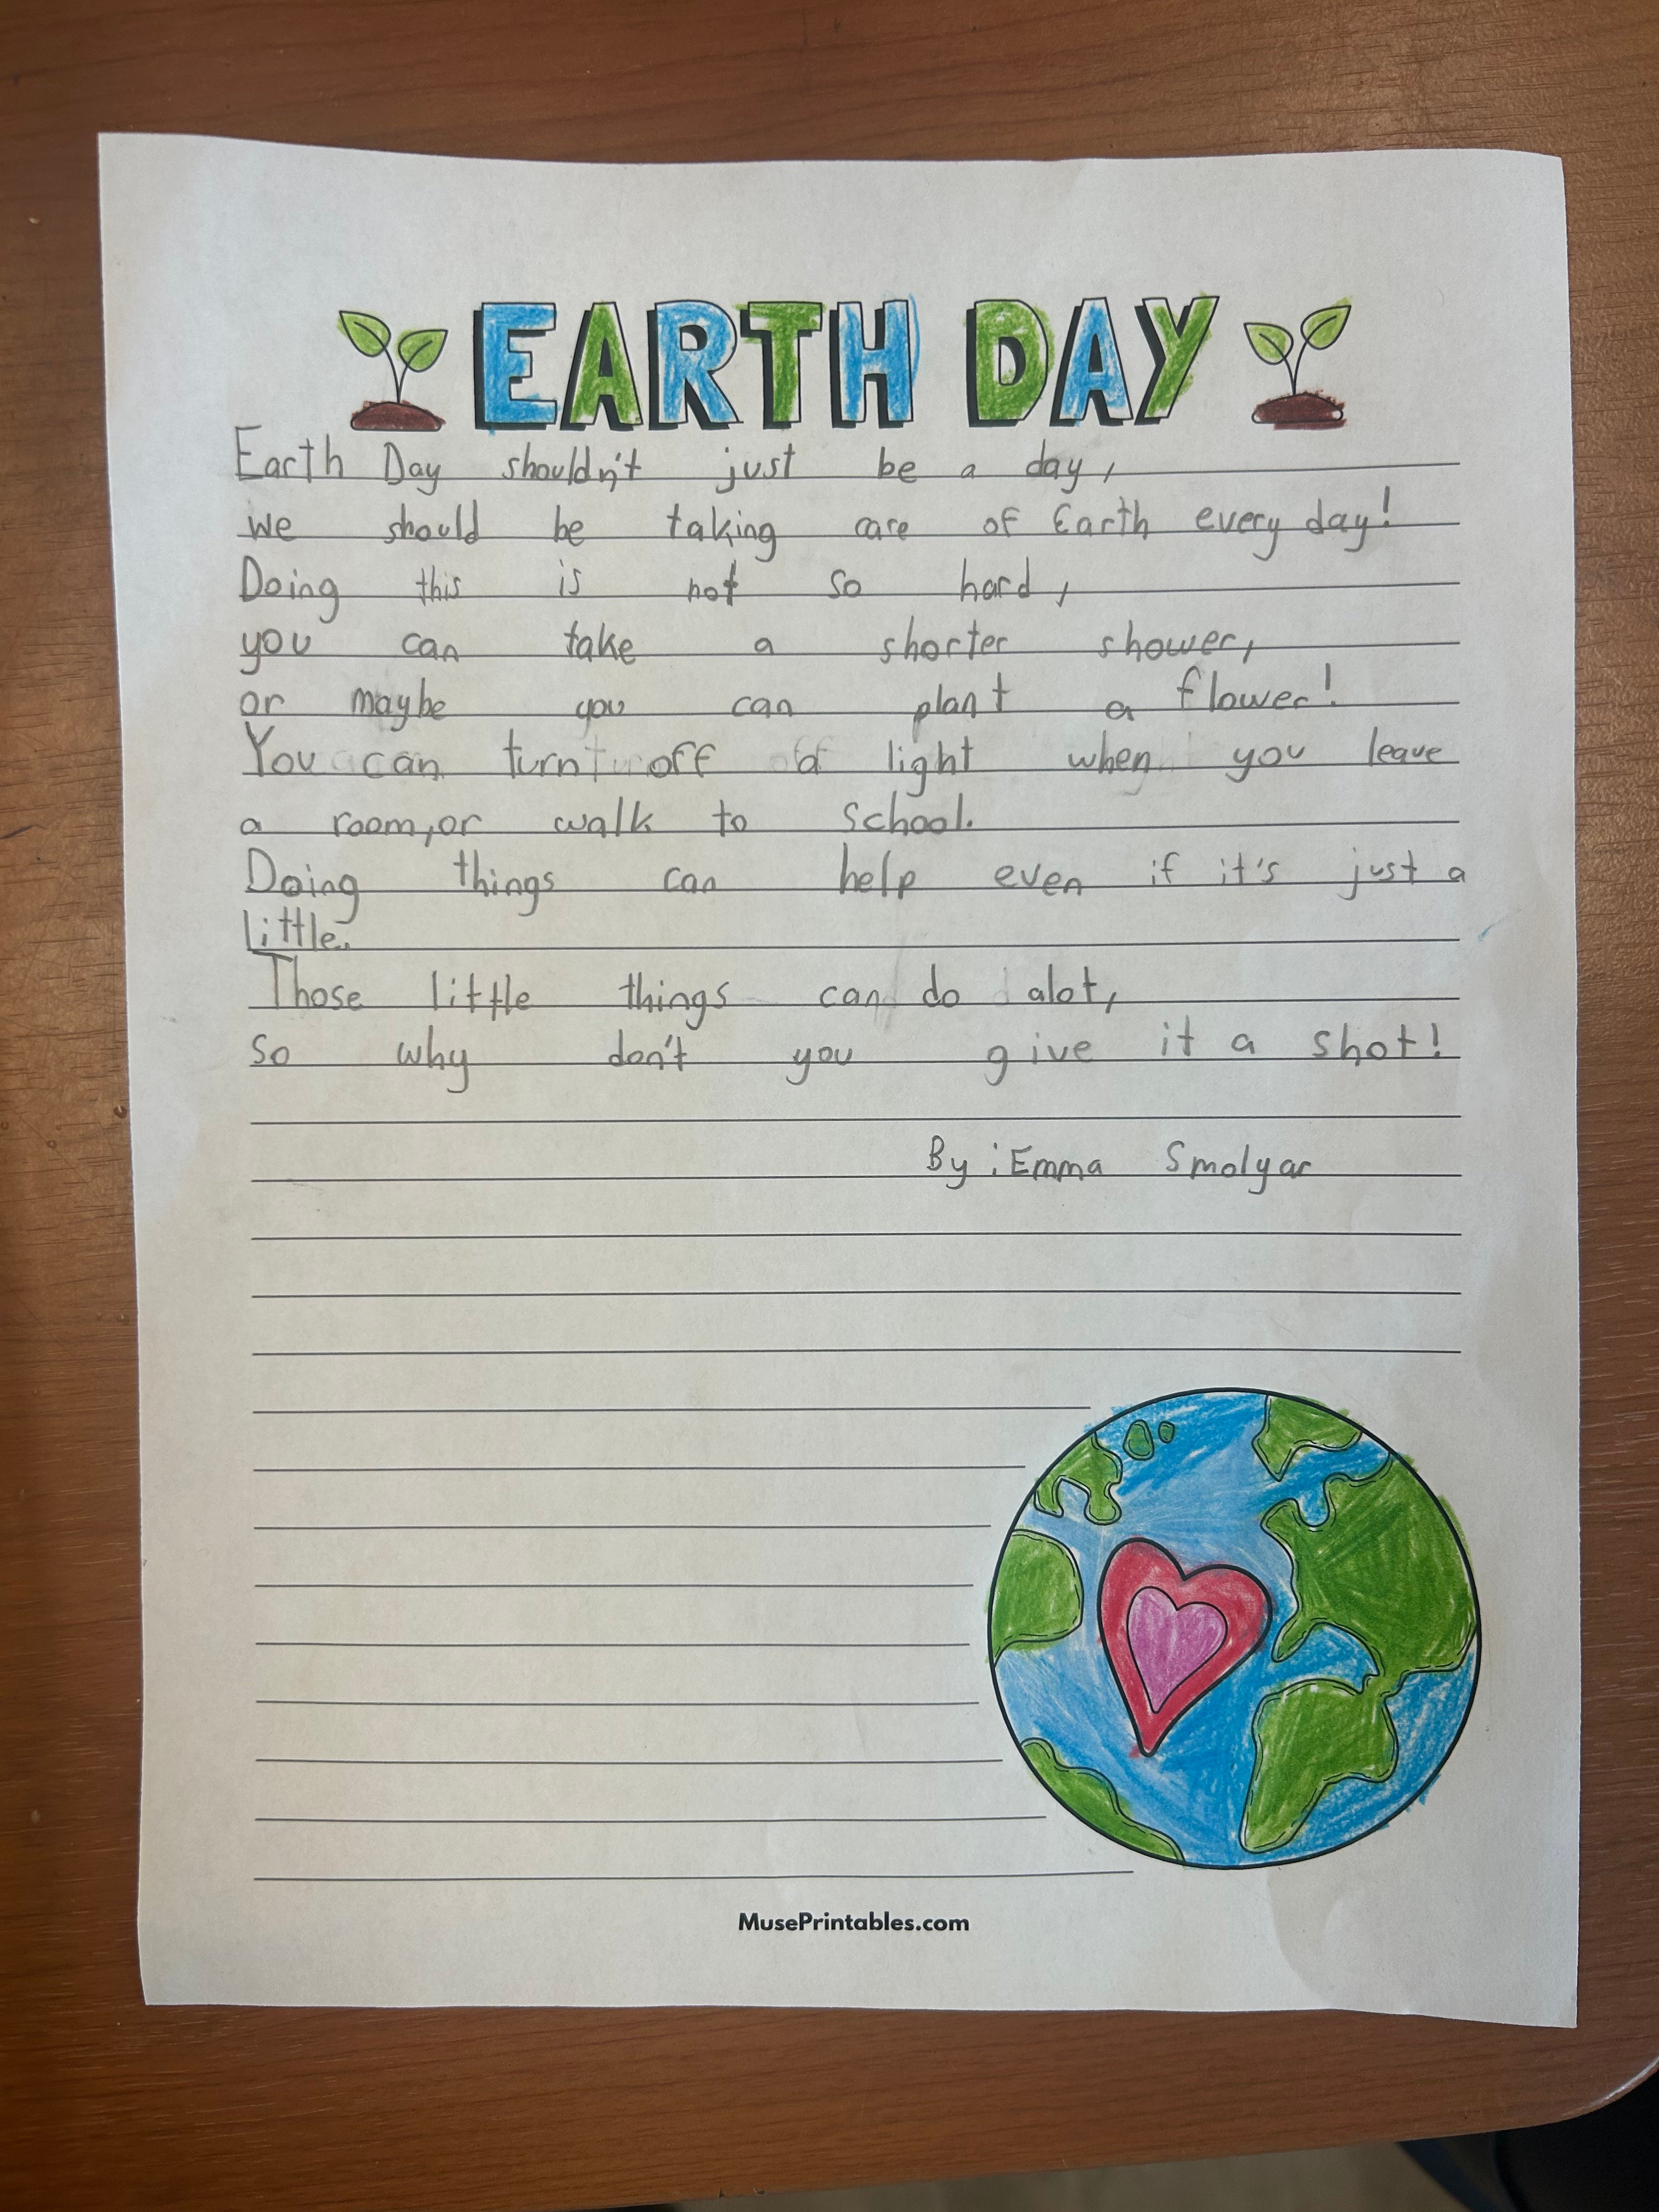 EARTH DAY
Earth Day shouldn't just be a day,
we should be taking care of Earth every day!
Doing this is not so hard,
you can take a shorter shower,
or maybe you can plant a flower!
You can turn off a light when you leave
a room, or walk to school.
Doing things can help even if it's just a
little.
Those little things can do alot,
so why don't you give it a shot!
By: Emma Smolyar
MusePrintables.com